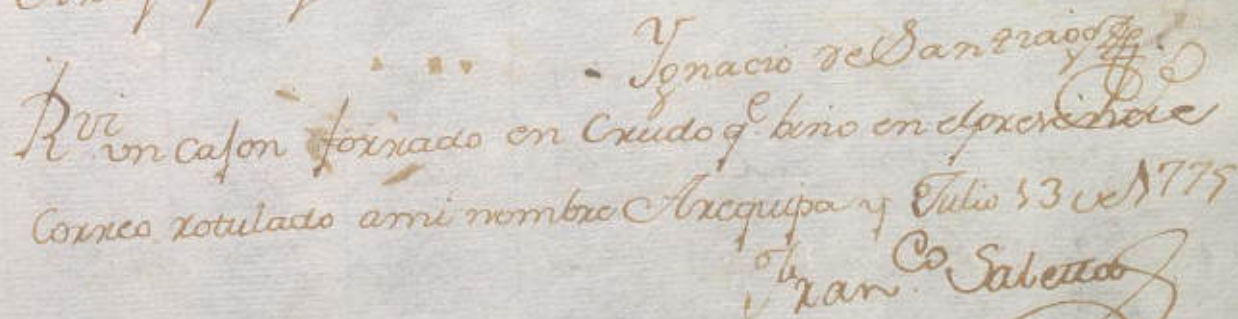 Ygnacio de Santiago
Rvi un Cajon forrado en Crudo q.e bino en el presente
Correo rotulado a mi nombre Arequipa y Julio 13 de 1775
Fran.co